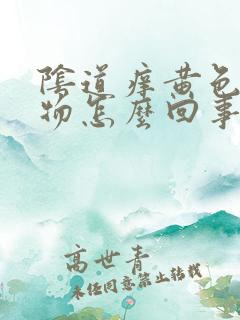 陰道痒黄色
物怎麼回事
高世青
未经同意禁止转载